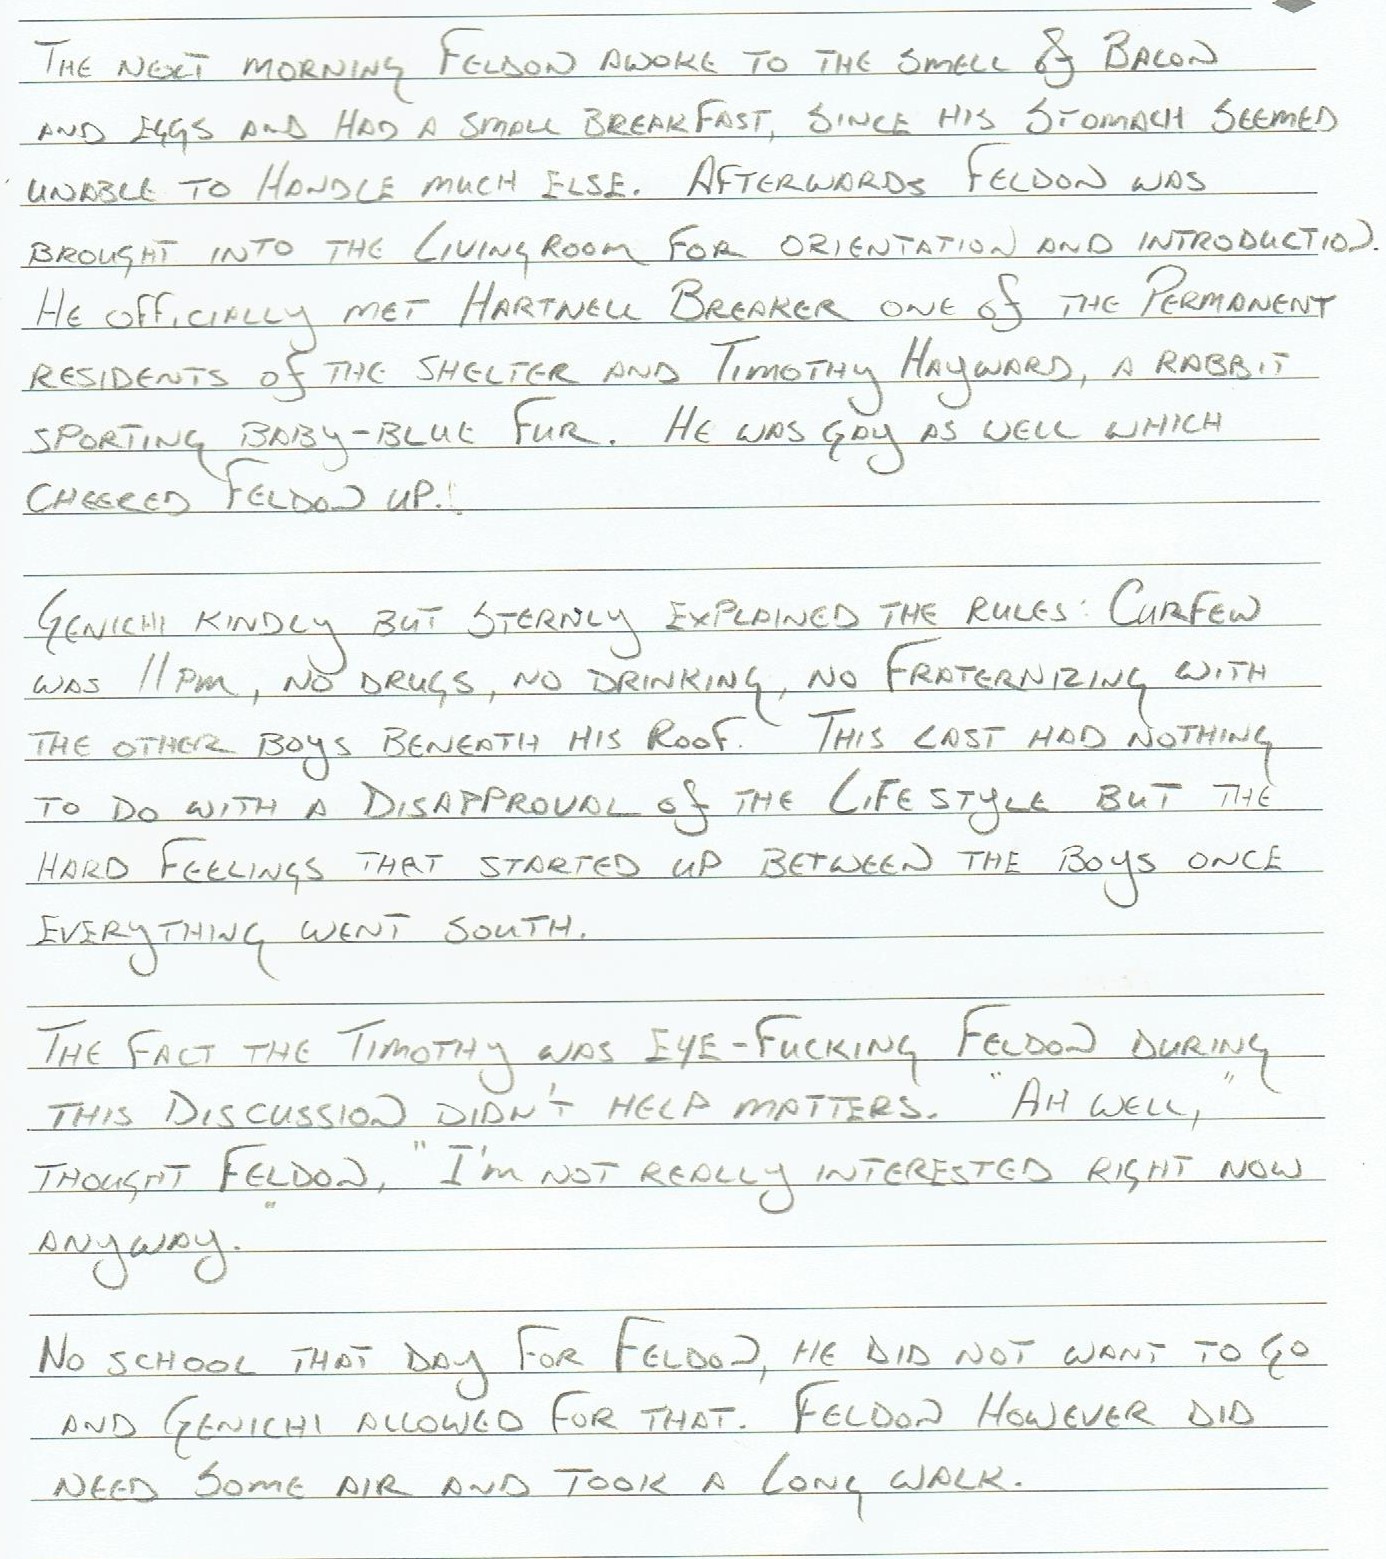 The next morning Feldon awoke to the smell of Bacon
and eggs and had a small breakfast, since his stomach seemed
unable to Handle much else. Afterwards Feldon was
brought into the Livingroom for orientation and introduction.
He officially met Hartnell Breaker one of the Permanent
residents of the shelter and Timothy Hayward, a rabbit
sporting baby-blue fur. He was gay as well which
cheered Feldon up.
Genichi kindly but sternly explained the rules: Curfew
was 11pm, no drugs, no drinking, no Fraternizing with
the other Boys beneath his roof. This last had nothing
to do with a Disapproval of the Lifestyle but the
hard feelings that started up between the Boys once
everything went south.
The fact the Timothy was eye-fucking Feldon during
this Discussion didn't help matters. "Ah well,"
thought Feldon, "I'm not really interested right now
anyway."
No school that day for Feldon, he did not want to go
and Genichi allowed for that. Feldon However did
need some air and took a long walk.